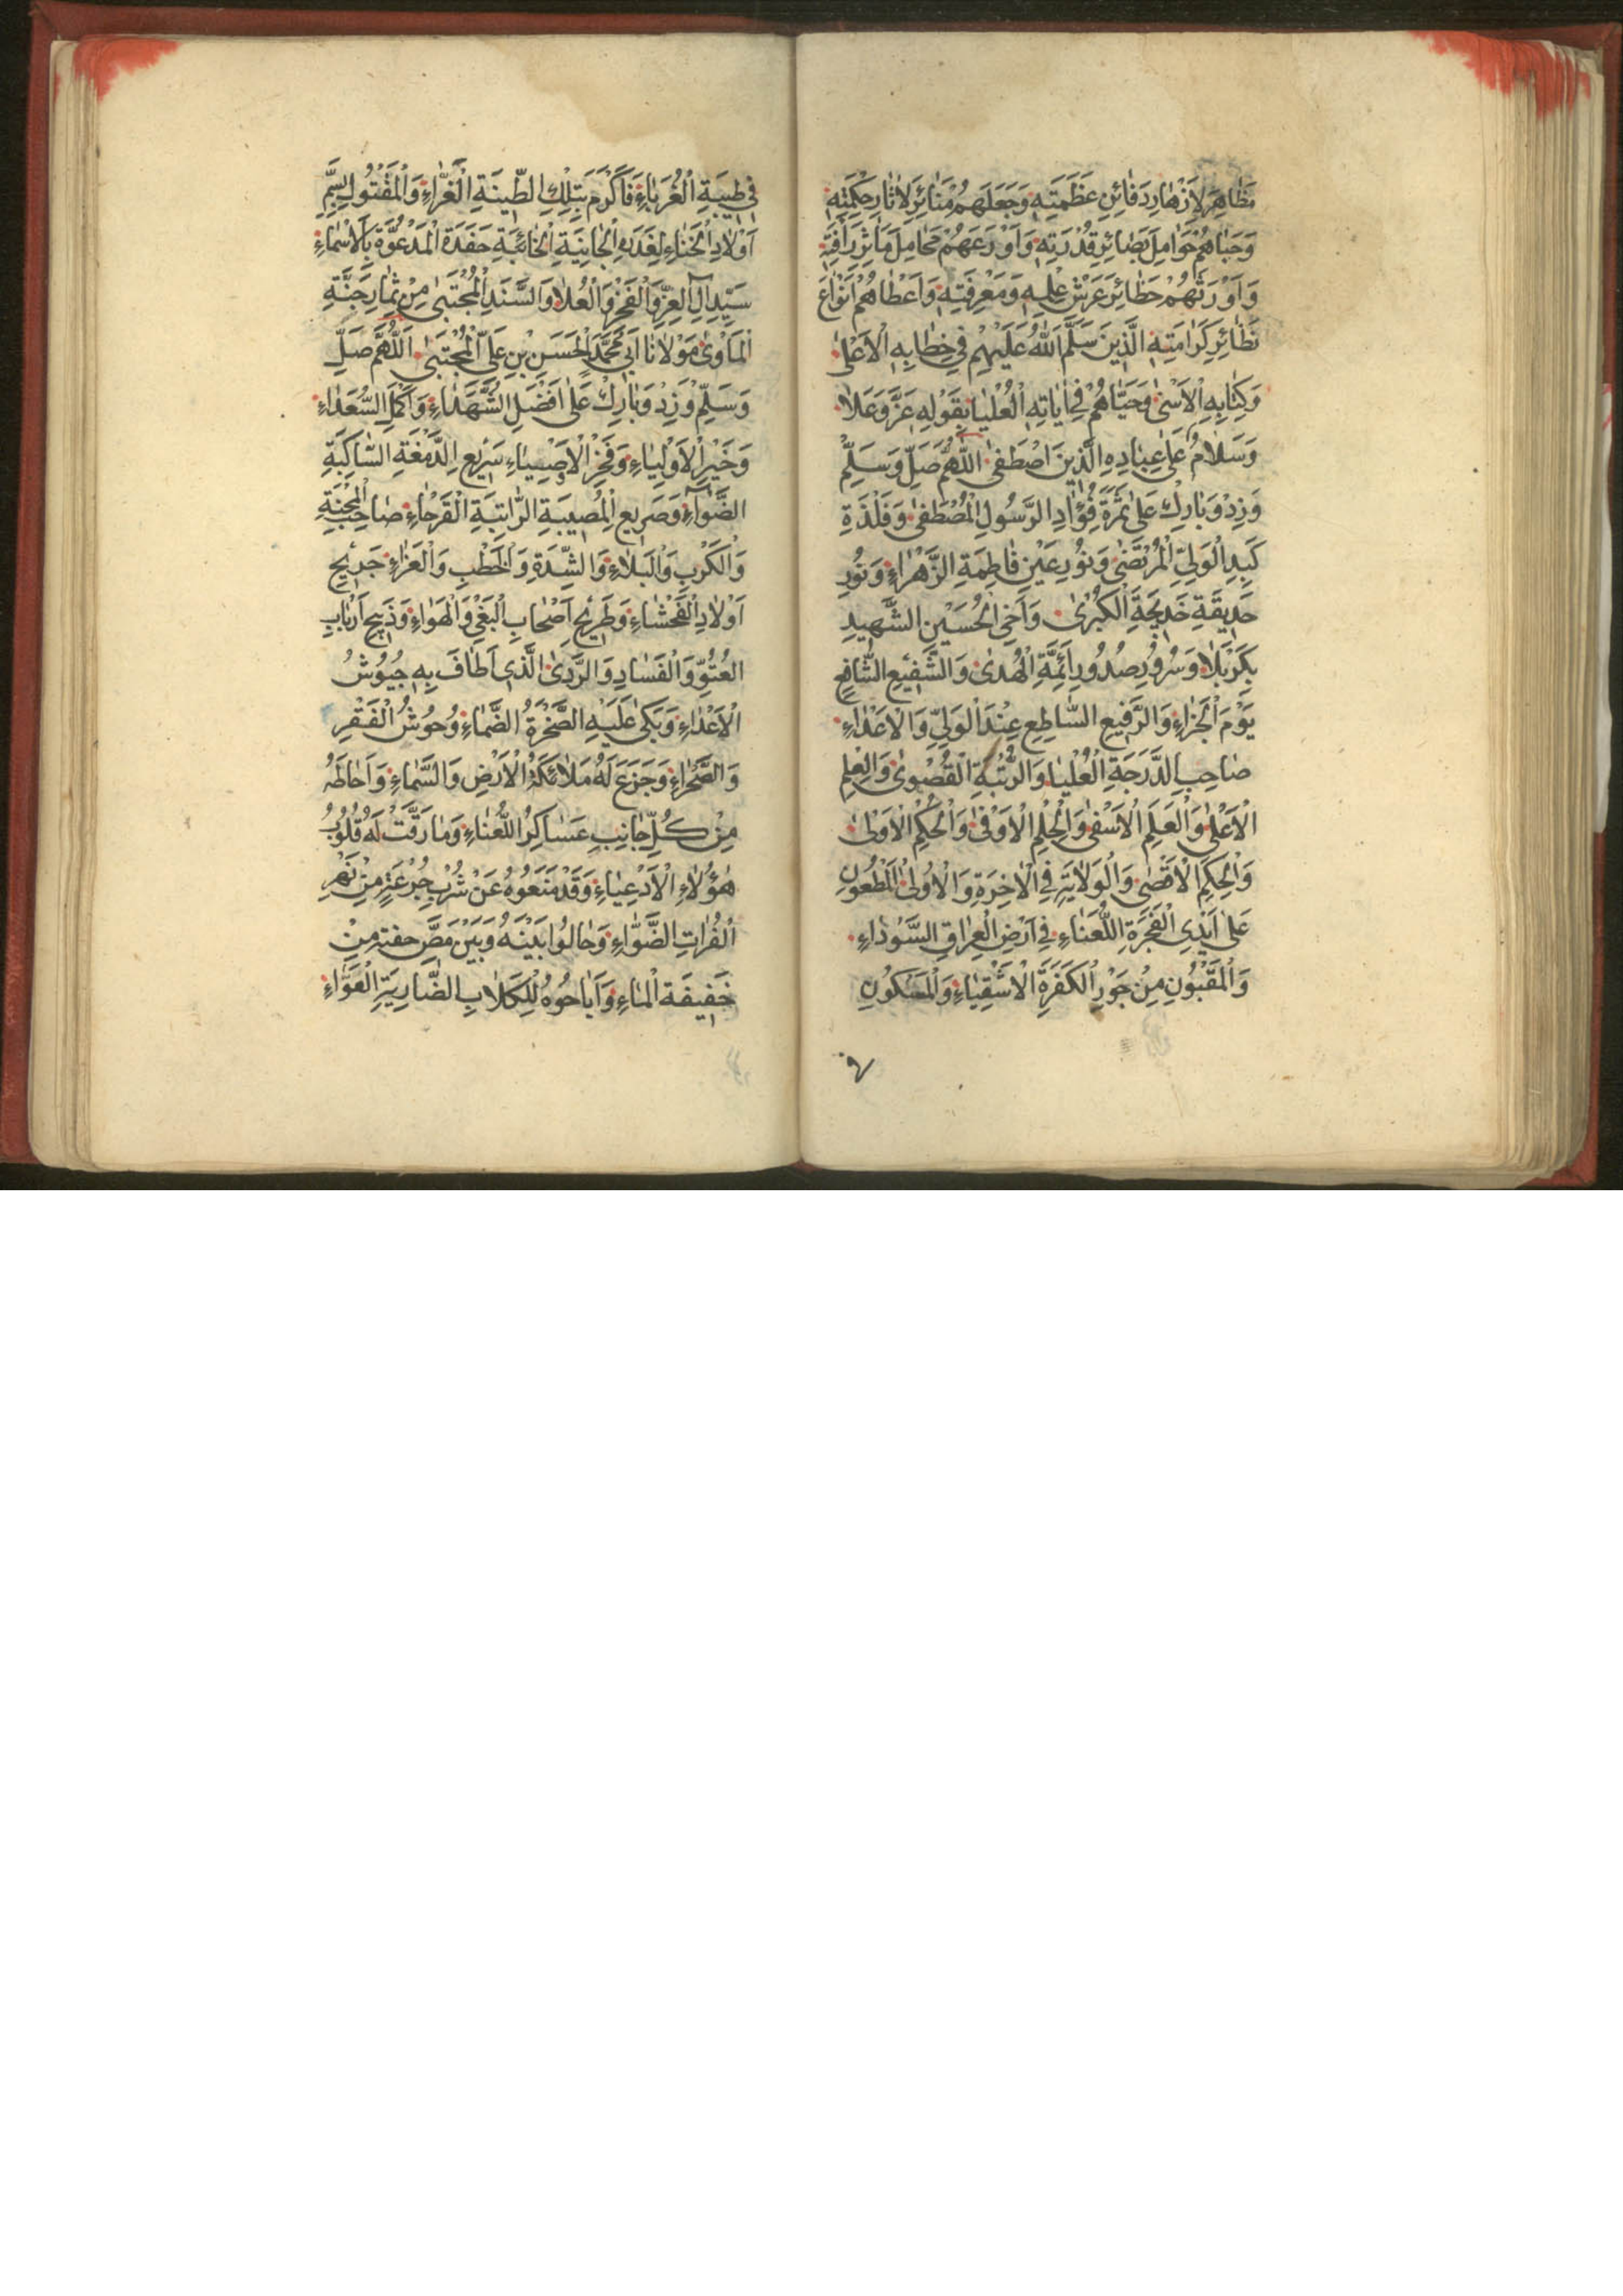 مَظَاهِرَ لِاَزْهَارِ دَفَائِنِ عَظَمَتِهِ وَجَعَلَهُمْ مَنَائِرَ لِاٰثَارِ حِكْمَتِهِ
وَحَبَاهُمْ حَوَامِلَ بَصَائِرِ قُدْرَتِهِ وَاَوْدَعَهُمْ مَحَامِلَ مَاٰثِرِ رَأْفَتِهِ
وَاَوْرَثَهُمْ حَظَائِرَ عَرْشِ عِلْمِهِ وَمَعْرِفَتِهِ وَاَعْطَاهُمْ اَنْوَاعَ
نَظَائِرِ كَرَامَتِهِ الَّذِينَ سَلَّمَ اللّٰهُ عَلَيْهِمْ فِي خِطَابِهِ الْاَعْلٰى
وَكِتَابِهِ الْاَسْنٰى وَحَيَّاهُمْ فِي اٰيَاتِهِ الْعُلْيَا بِقَوْلِهِ عَزَّ وَعَلَا
وَسَلَامٌ عَلٰى عِبَادِهِ الَّذِينَ اصْطَفٰى اللّٰهُمَّ صَلِّ وَسَلِّمْ
وَزِدْ وَبَارِكْ عَلٰى ثَمَرَةِ فُؤَادِ الرَّسُولِ الْمُصْطَفٰى وَفَلْذَةِ
كَبِدِ الْوَلِيِّ الْمُرْتَضٰى وَنُورِ عَيْنِ فَاطِمَةِ الزَّهْرَاءِ وَنُورِ
حَدِيقَةِ خَدِيجَةَ الْكُبْرٰى وَاَخِي الْحُسَيْنِ الشَّهِيدِ
بِكَرْبَلَا وَسُرُورِ صُدُورِ اَئِمَّةِ الْهُدٰى وَالشَّفِيعِ الشَّافِعِ
يَوْمَ الْجَزَاءِ وَالرَّفِيعِ السَّاطِعِ عِنْدَ الْوَلِيِّ وَالْاَعْدَاءِ
صَاحِبِ الدَّرَجَةِ الْعُلْيَا وَالرُّتْبَةِ الْقُصْوٰى وَالْعِلْمِ
الْاَعْلٰى وَالْعَلَمِ الْاَسْفٰى وَالْحِلْمِ الْاَوْفٰى وَالْحُكْمِ الْاَوْلٰى
وَالْحِكَمِ الْاَقْضٰى وَالْوَلَايَةِ فِي الْاٰخِرَةِ وَالْاُولٰى الْمَطْعُونِ
عَلٰى اَيْدِي الْفَجَرَةِ اللُّعَنَاءِ فِي اَرْضِ الْعِرَاقِ السَّوْدَاءِ
وَالْمَقْبُونِ مِنْ جَوْرِ الْكَفَرَةِ الْاَشْقِيَاءِ وَالْمَسْكُونِ
فِي طَيْبَةِ الْغُرَبَاءِ فَاَكْرَمَ بِتِلْكَ الطِّينَةِ الْغَرَّاءِ وَالْمَقْتُولِ بِسَمِّ
اَوْلَادِ الْخَنَاءِ لِغَدَرَةِ الْجَانِيَةِ الْخَائِبَةِ حَفَدَةِ الْمَدْعُوَّةِ بِالْاَسْمَاءِ
سَيِّدِ اٰلِ الْعِزِّ وَالْفَخْرِ وَالْعُلَا وَالسَّنَدِ الْمُجْتَبٰى مِنْ ثِمَارِ جَنَّةِ
الْمَأْوٰى مَوْلَانَا اَبِي مُحَمَّدٍ الْحَسَنِ بْنِ عَلِيٍّ الْمُجْتَبٰى اَللّٰهُمَّ صَلِّ
وَسَلِّمْ وَزِدْ وَبَارِكْ عَلٰى اَفْضَلِ الشُّهَدَاءِ وَاَكْمَلِ السُّعَدَاءِ
وَخَيْرِ الْاَوْلِيَاءِ وَفَخْرِ الْاَصْفِيَاءِ سَرِيعِ الدَّمْعَةِ السَّاكِبَةِ
الضَّوَاءِ وَصَرِيعِ الْمُصِيبَةِ الرَّاتِبَةِ الْقَرْحَاءِ صَاحِبِ الْمِحْنَةِ
وَالْكَرْبِ وَالْبَلَاءِ وَالشِّدَّةِ وَالْخَطْبِ وَالْعَزَاءِ جَرِيحِ
اَوْلَادِ الْفَحْشَاءِ وَطَرِيحِ اَصْحَابِ الْبَغْيِ وَالْهَوَاءِ وَذَبِيحِ اَرْبَابِ
الْعُتُوِّ وَالْفَسَادِ وَالرَّدٰى الَّذِي اَطَافَ بِهِ جُيُوشُ
الْاَعْدَاءِ وَبَكٰى عَلَيْهِ الصَّخْرَةُ الصَّمَّاءِ وَحُوشُ الْفَقْرِ
وَالصَّحْرَاءِ وَجَزَعَ لَهُ مَلَائِكَةُ الْاَرْضِ وَالسَّمَاءِ وَاَحَاطَهُ
مِنْ كُلِّ جَانِبٍ عَسَاكِرُ اللُّعَنَاءِ وَمَا رَقَّتْ لَهُ قُلُوبُ
هٰؤُلَاءِ الْاَدْعِيَاءِ وَقَدْ مَنَعُوهُ عَنْ شُرْبِ جُرْعَةٍ مِنْ نَهْرِ
الْفُرَاتِ الضَّوَّاءِ وَحَالُوا بَيْنَهُ وَبَيْنَ مَصِّ حفنة مِنْ
خَفِيفَةِ الْمَاءِ وَاَبَاحُوهُ لِلْكِلَابِ الضَّارِيَةِ الْعَوَّاءِ